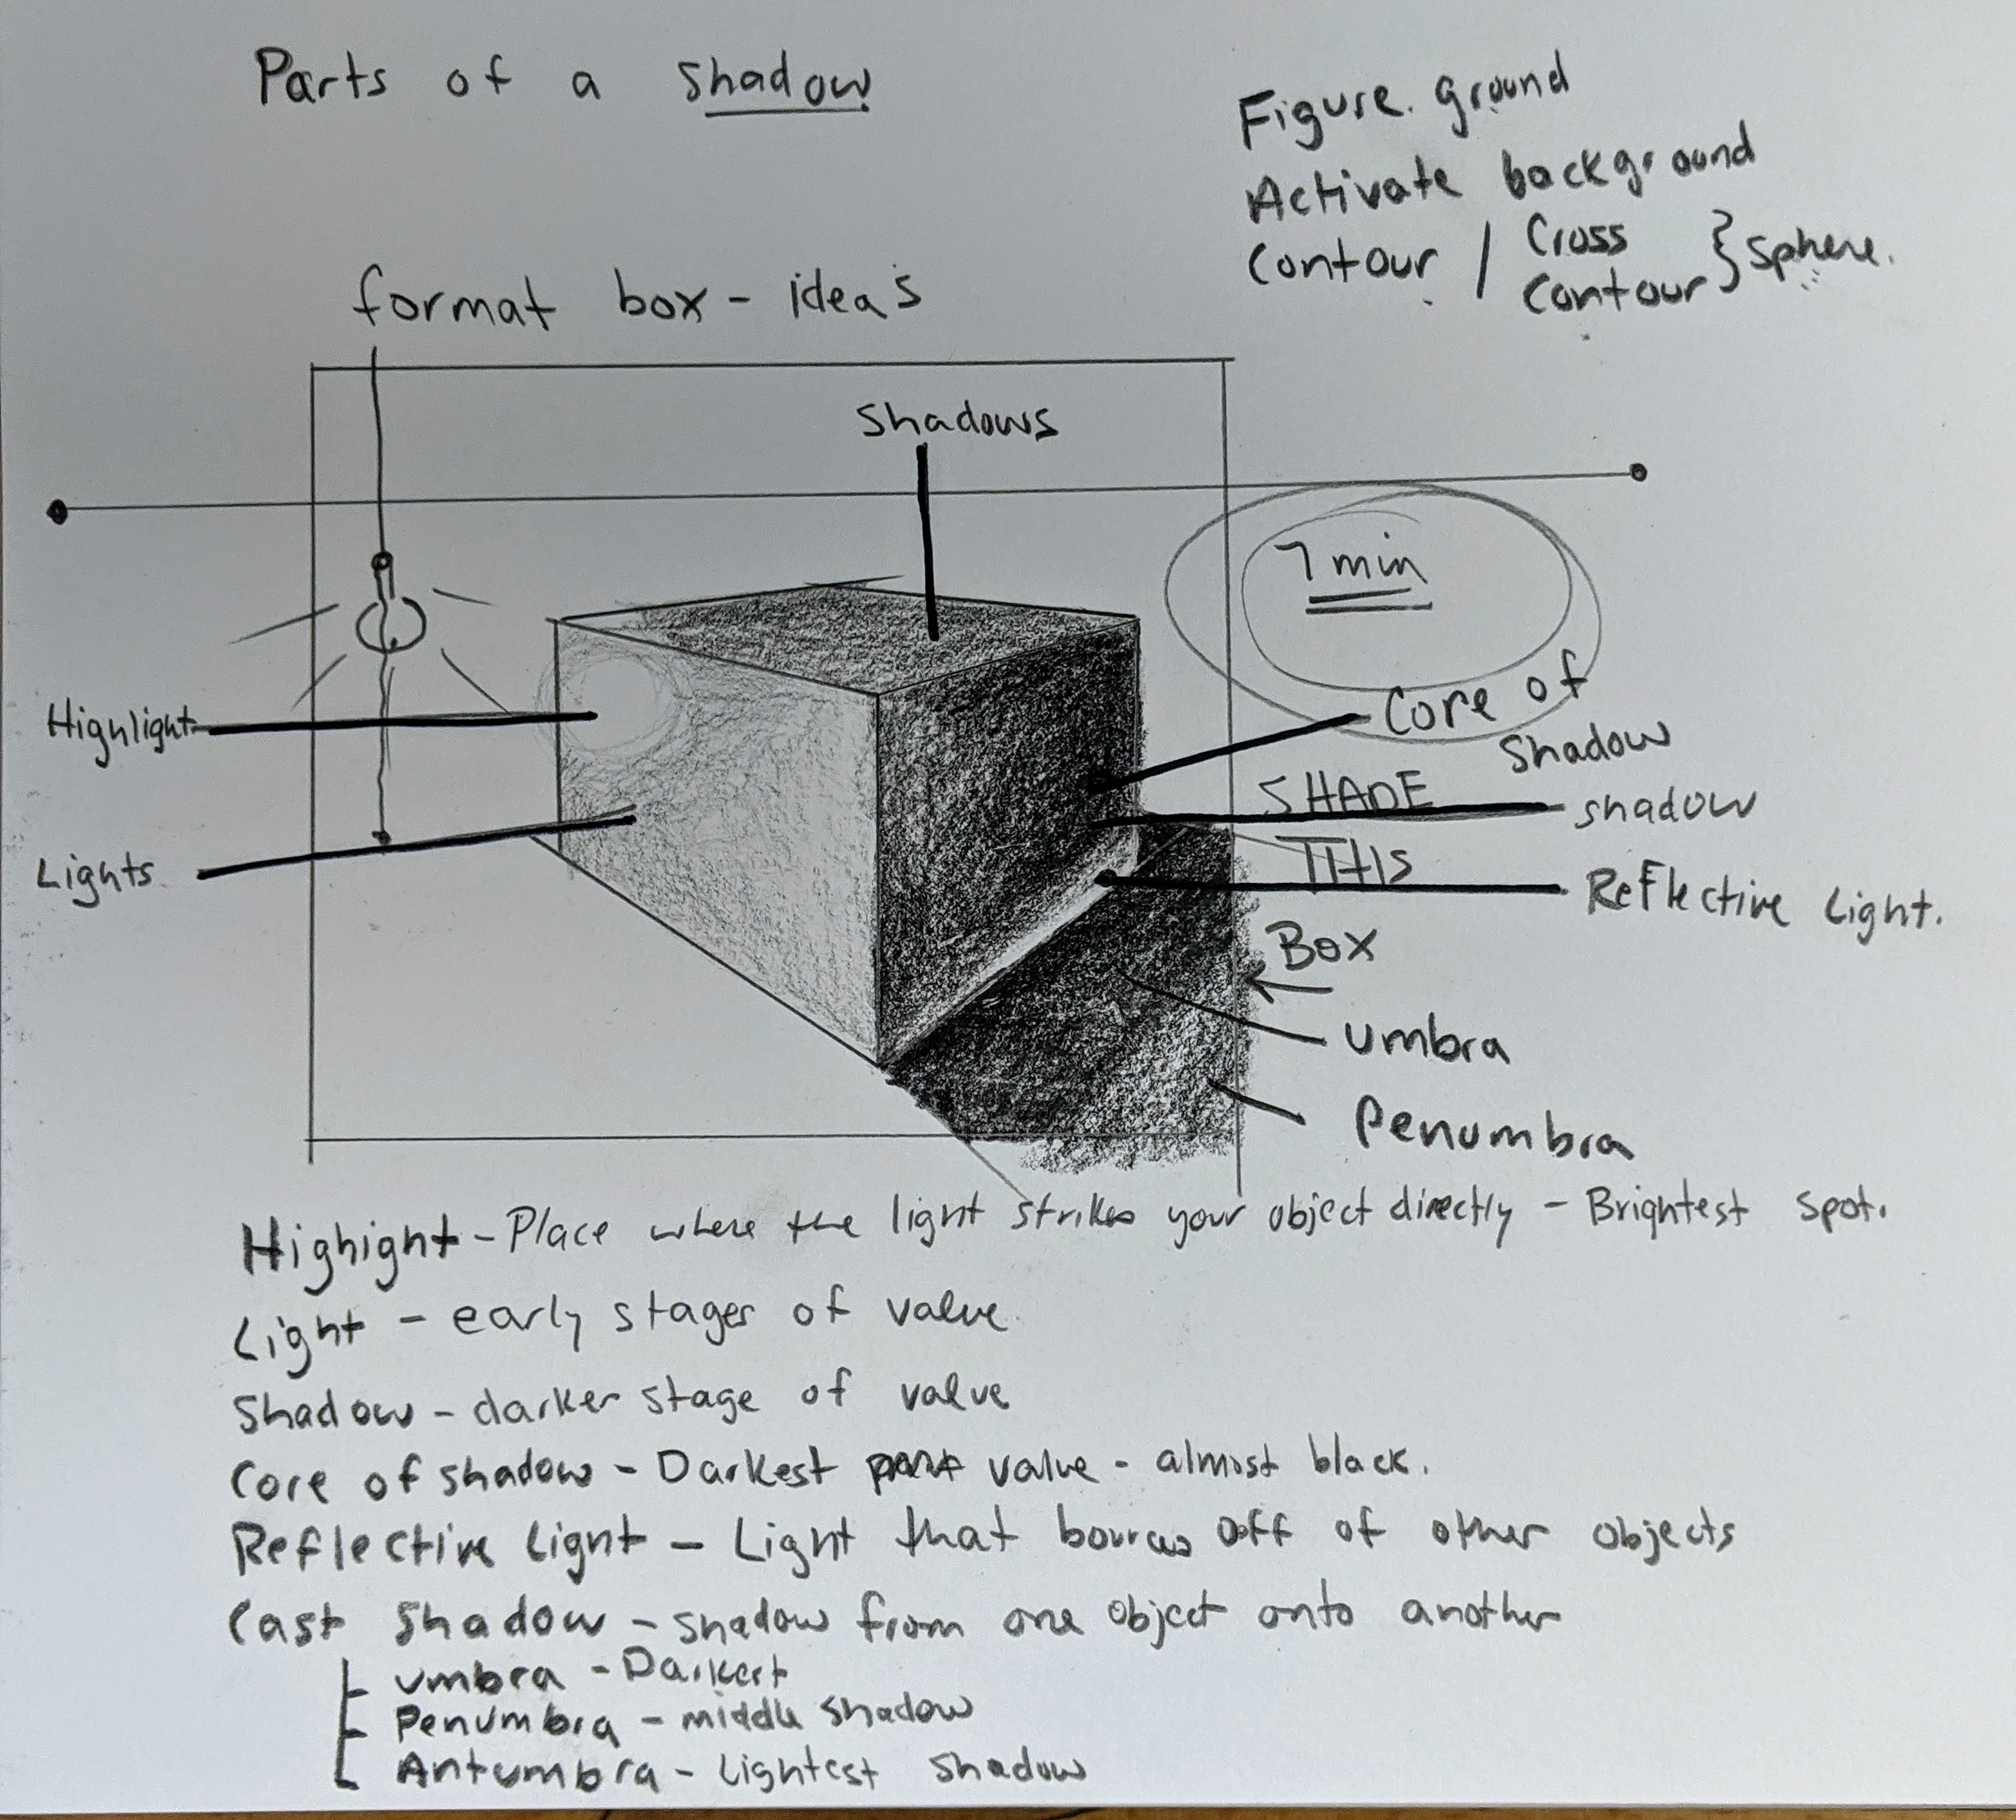 Parts of a shadow
Figure. ground
Activate background
Contour / Cross
Contour } sphere.
format box - idea's
Shadows
7 min
Highlight
Core of
Shadow
SHADE
shadow
THIS
Lights
Reflective Light.
Box
umbra
Penumbra
Highight - Place where the light strikes your object directly - Brightest spot.
Light - early stages of value.
Shadow - darker stage of value
Core of shadow - Darkest value - almost black.
Reflective Light - Light that off of other objects
Cast Shadow - shadow from one object onto another
umbra - Darkest
Penumbra - middle shadow
Antumbra - Lightest shadow